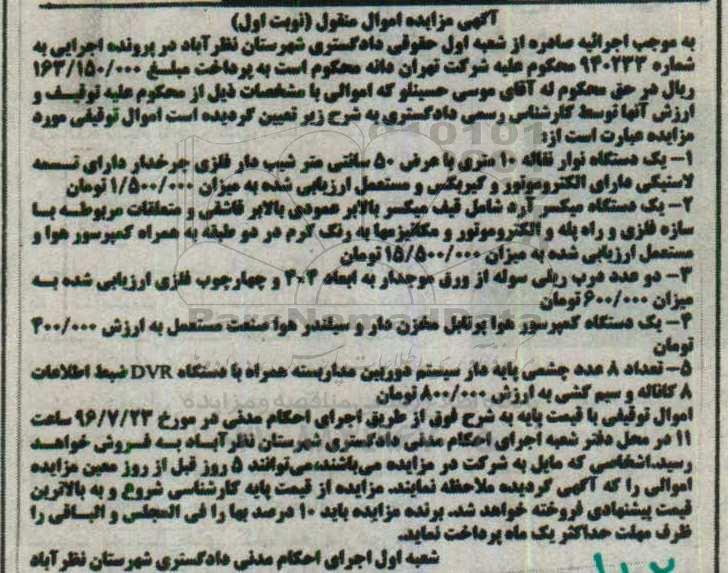 آگهی مزایده اموال منقول (نوبت اول)
به موجب اجرائیه صادره از شعبه اول حقوقی دادگستری شهرستان نظرآباد در پرونده اجرایی به
شماره ۹۴۰۲۳۳ محکوم علیه شرکت تهران دانه محکوم است به پرداخت مبلغ ۱۶۳/۱۵۰/۰۰۰
ریال در حق محکوم له آقای موسی حسینلو که اموالی با مشخصات ذیل از محکوم علیه توقیف و
ارزش آنها توسط کارشناس رسمی دادگستری به شرح زیر تعیین گردیده است اموال توقیفی مورد
مزایده عبارت است از:
۱- یک دستگاه نوار نقاله ۱۰ متری با عرض ۵۰ سانتی متر شیب دار فلزی چرخدار دارای تسمه
لاستیکی دارای الکتروموتور و گیربکس و مستعمل ارزیابی شده به میزان ۱/۵۰۰/۰۰۰ تومان
۲- یک دستگاه میکسر آرد شامل قیف میکسر بالابر عمودی بالابر قاشقی و متعلقات مربوطه با
سازه فلزی و راه پله و الکتروموتور و مکانیزمها به رنگ کرم در دو طبقه به همراه کمپرسور هوا و
مستعمل ارزیابی شده به میزان ۱۵/۵۰۰/۰۰۰ تومان
۳- دو عدد درب ریلی سوله از ورق موجدار به ابعاد ۴×۴ و چهارچوب فلزی ارزیابی شده به
میزان ۶۰۰/۰۰۰ تومان
۴- یک دستگاه کمپرسور هوا پرتابل مخزن دار و سیلندر هوا صنعت مستعمل به ارزش ۴۰۰/۰۰۰
تومان
۵- تعداد ۸ عدد چشمی پایه دار سیستم دوربین مداربسته همراه با دستگاه DVR ضبط اطلاعات
۸ کاناله و سیم کشی به ارزش ۸۰۰/۰۰۰ تومان
اموال توقیفی با قیمت پایه به شرح فوق از طریق اجرای احکام مدنی در مورخ ۹۶/۷/۲۳ ساعت
۱۱ در محل دفتر شعبه اجرای احکام مدنی دادگستری شهرستان نظرآباد به فروش خواهد
رسید.اشخاصی که مایل به شرکت در مزایده می‌باشند،می‌توانند ۵ روز قبل از روز معین مزایده
اموالی را که آگهی گردیده ملاحظه نمایند. مزایده از قیمت پایه کارشناسی شروع و به بالاترین
قیمت پیشنهادی فروخته خواهد شد. برنده مزایده باید ۱۰ درصد بها را فی المجلس و الباقی را
ظرف مهلت حداکثر یک ماه پرداخت نماید.
شعبه اول اجرای احکام مدنی دادگستری شهرستان نظرآباد
ParsNamadData